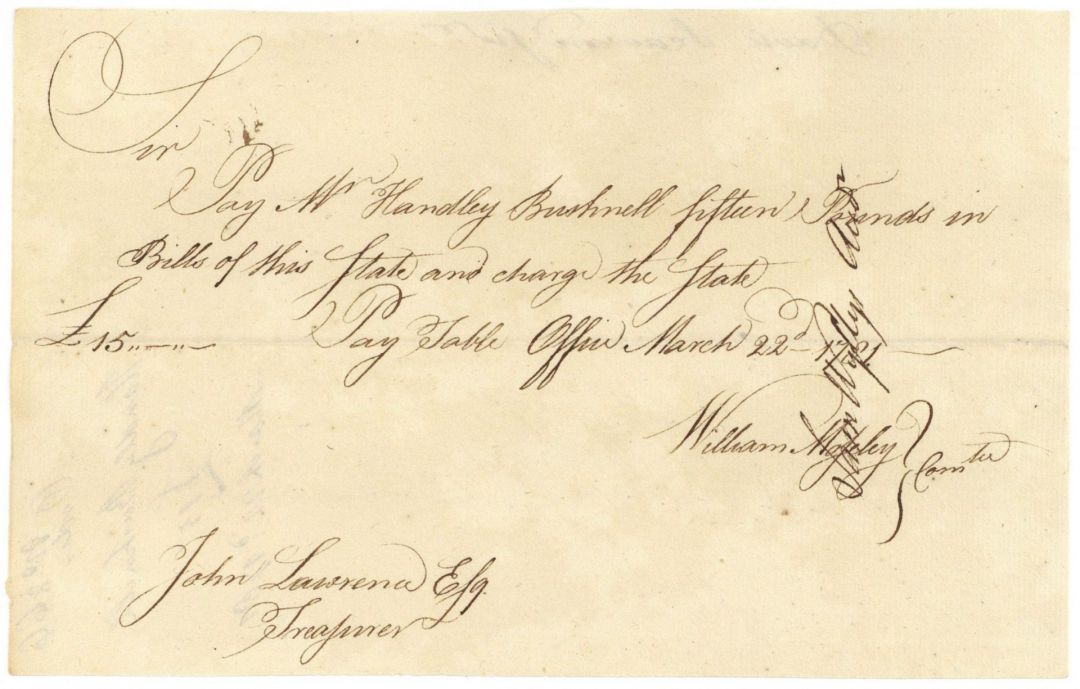 Sir
Pay Mr Handley Bushnell fifteen Pounds in
Bills of this State and charge the State
£15,,—,,— Pay Table Office March 22d — 1781 —
William Moseley } Comtee
John Lawrence Esqr.
Treasurer
Wyllys